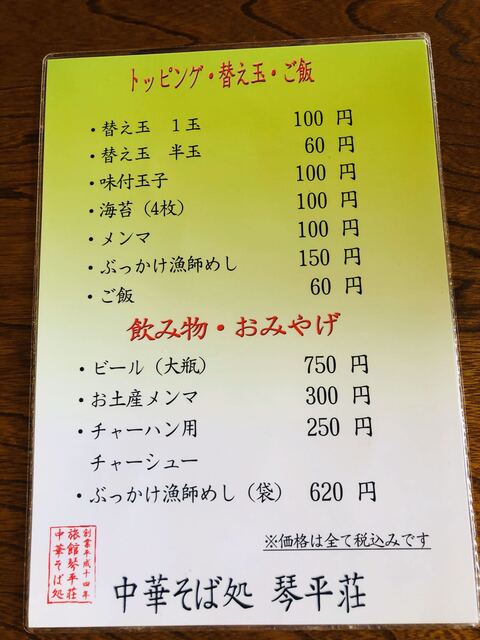 トッピング・替え玉・ご飯
・替え玉　１玉　100 円
・替え玉　半玉　60 円
・味付玉子　100 円
・海苔（4枚）　100 円
・メンマ　100 円
・ぶっかけ漁師めし　150 円
・ご飯　60 円
飲み物・おみやげ
・ビール（大瓶）　750 円
・お土産メンマ　300 円
・チャーハン用　250 円
チャーシュー
・ぶっかけ漁師めし（袋）　620 円
※価格は全て税込みです
創業平成十四年
旅館琴平荘
中華そば処
中華そば処 琴平荘